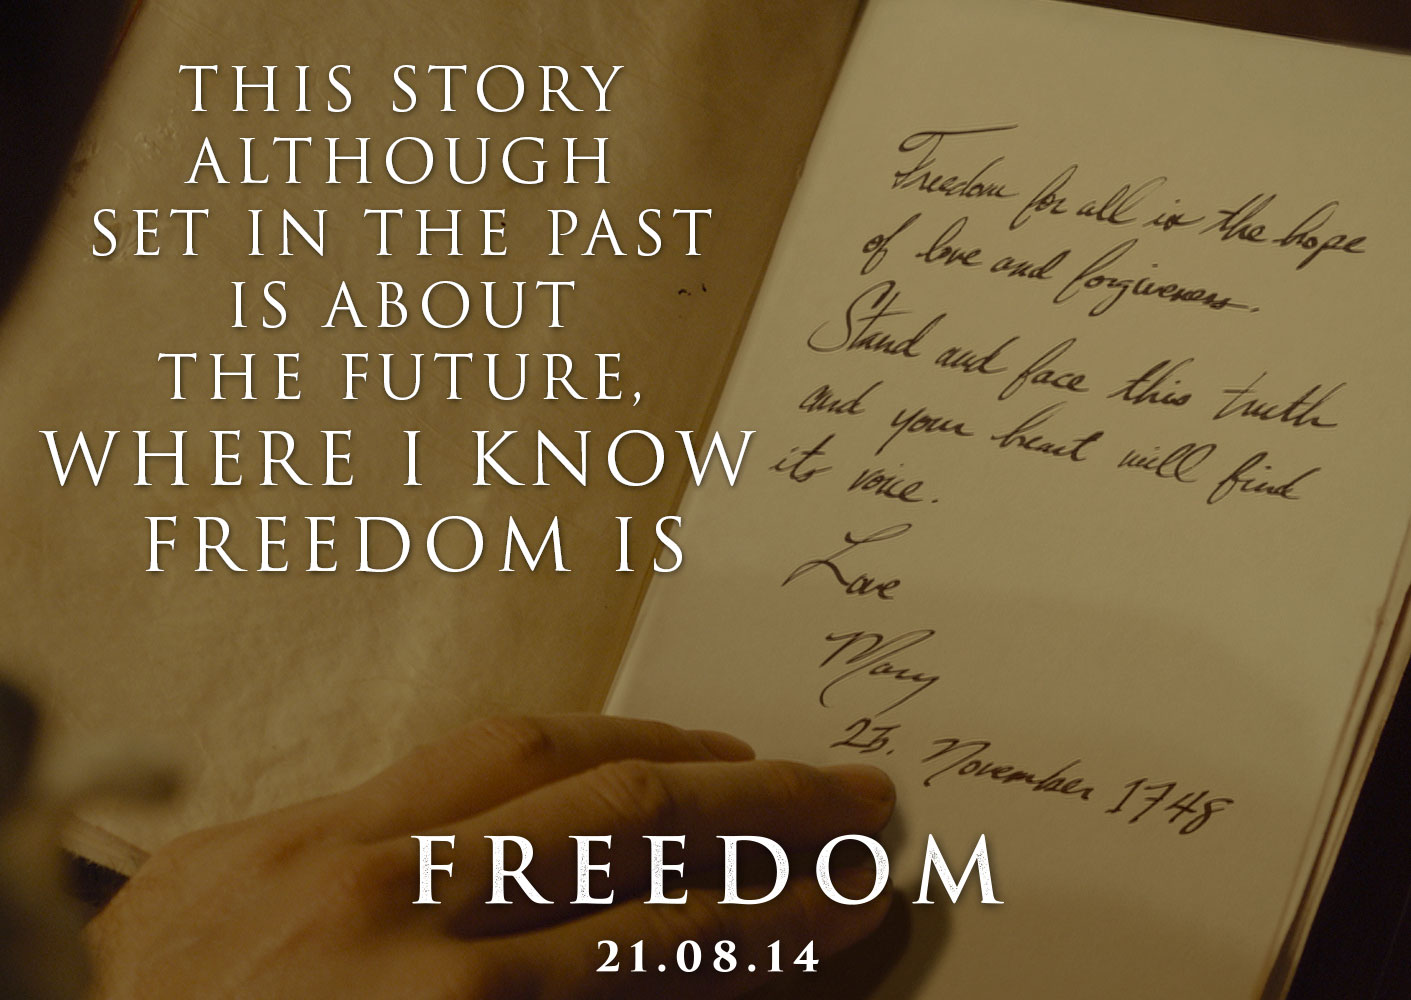 THIS STORY
ALTHOUGH
SET IN THE PAST
IS ABOUT
THE FUTURE,
WHERE I KNOW
FREEDOM IS
Freedom for all is the hope
of love and forgiveness.
Stand and face this truth
and your heart will find
its voice.
Love
Mary
November 1748
FREEDOM
21.08.14